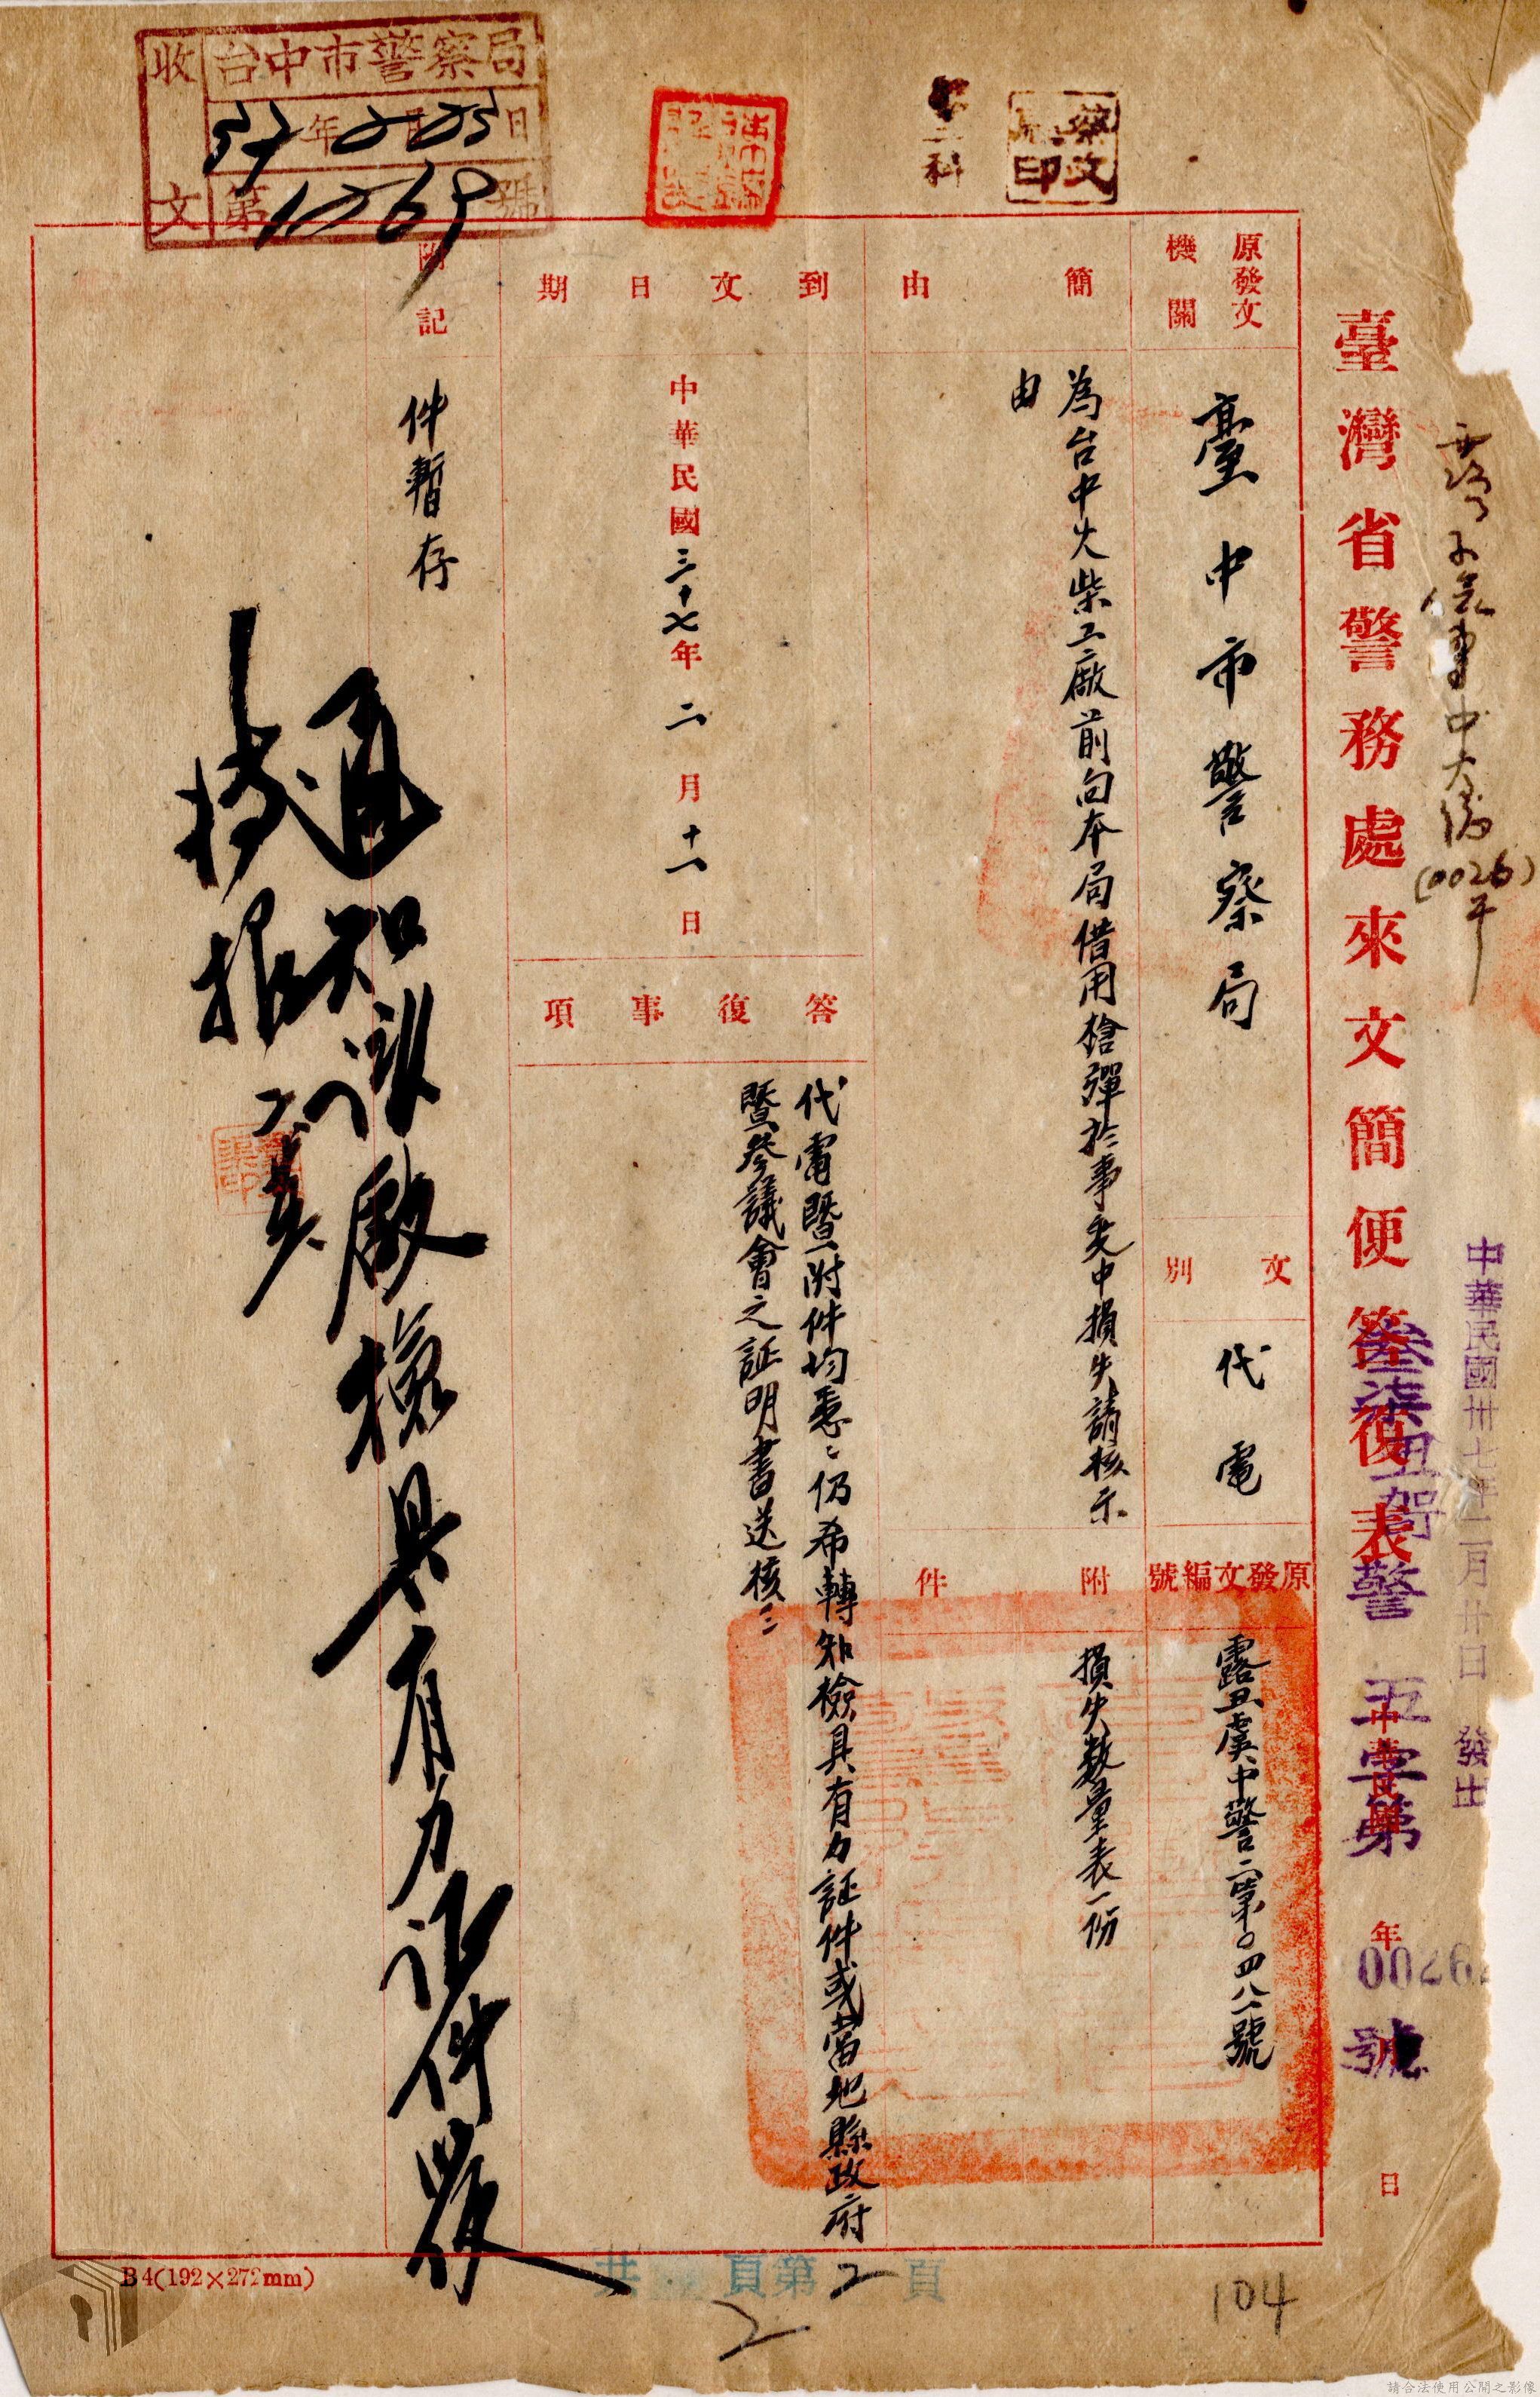 臺灣省警務處來文簡便答復表
中華民國卅七年二月廿日發出
叁柒丑
警
第
號
年
日
(0026)
原發文機關
臺中市警察局
文別
代電
原發文編號
露丑虞中警二第〇四八一號
簡由
為台中火柴工廠前向本局借用槍彈於事変中損失請核示
由
附件
損失数量表一份
到文日期
中華民國三十七年二月十一日
答復事項
代電暨附件均悉:仍希轉知檢具有力証件或當地縣政府
暨參議會之証明書送核:
附記
件暫存
通知該廠檢具有力証件覆
收文
台中市警察局
37年2月25日
第1269號
第二科
共頁第2頁
2
104
B4(192×272mm)
請合法使用公開之影像